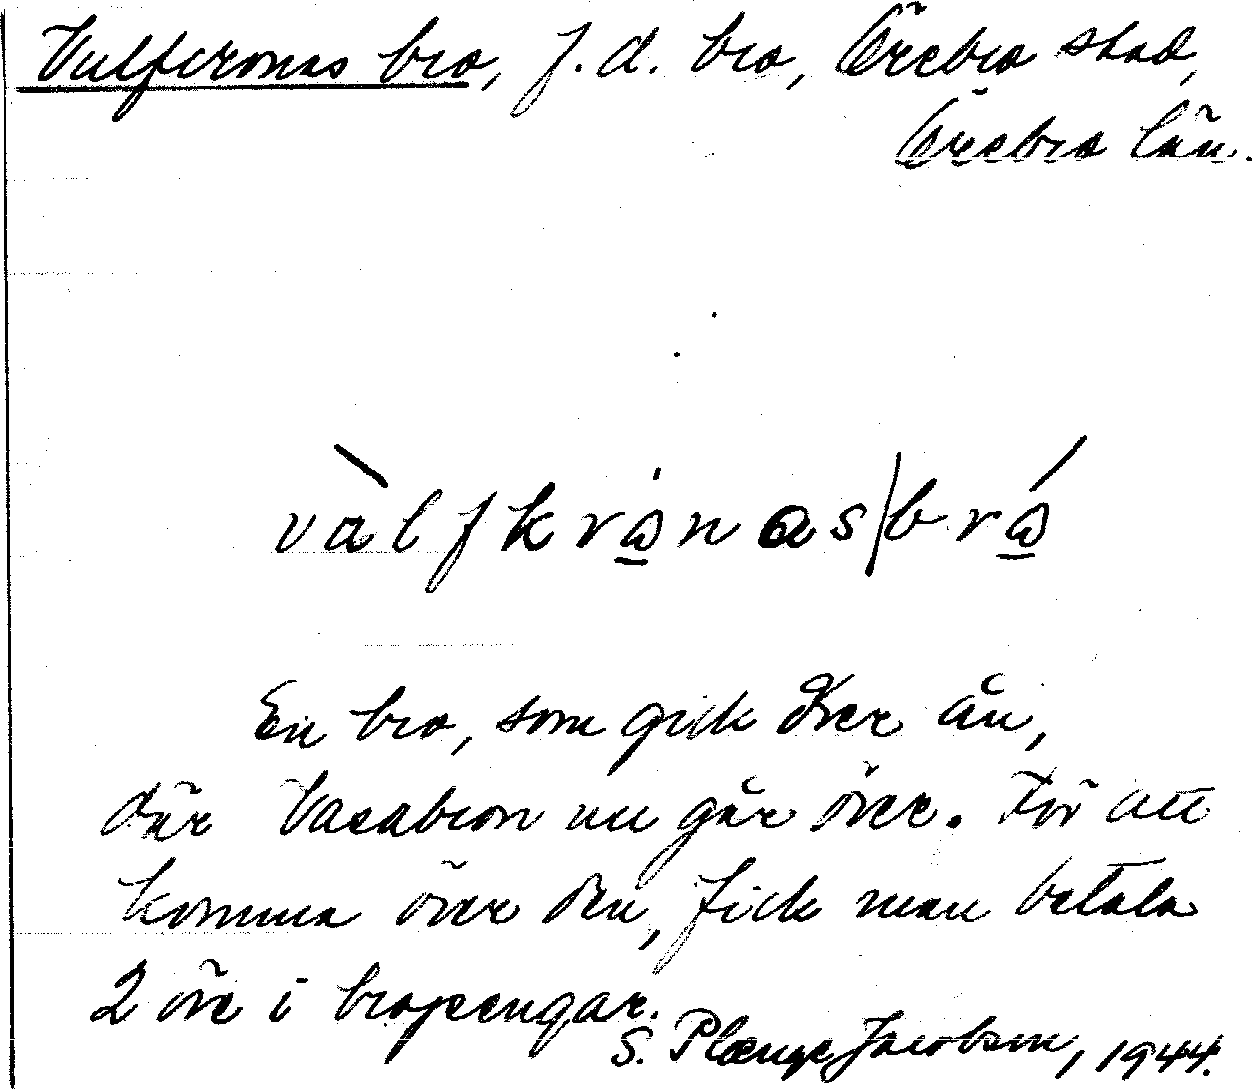 Vulfcronas bro, f.d. bro, Örebro stad,
Örebro län.
valfkrånas|brå
En bro, som gick över ån,
där Vasabron nu går över. För att
komma över den, fick man betala
2 öre i bropengar.
S. Plænge Jacobson, 1944.